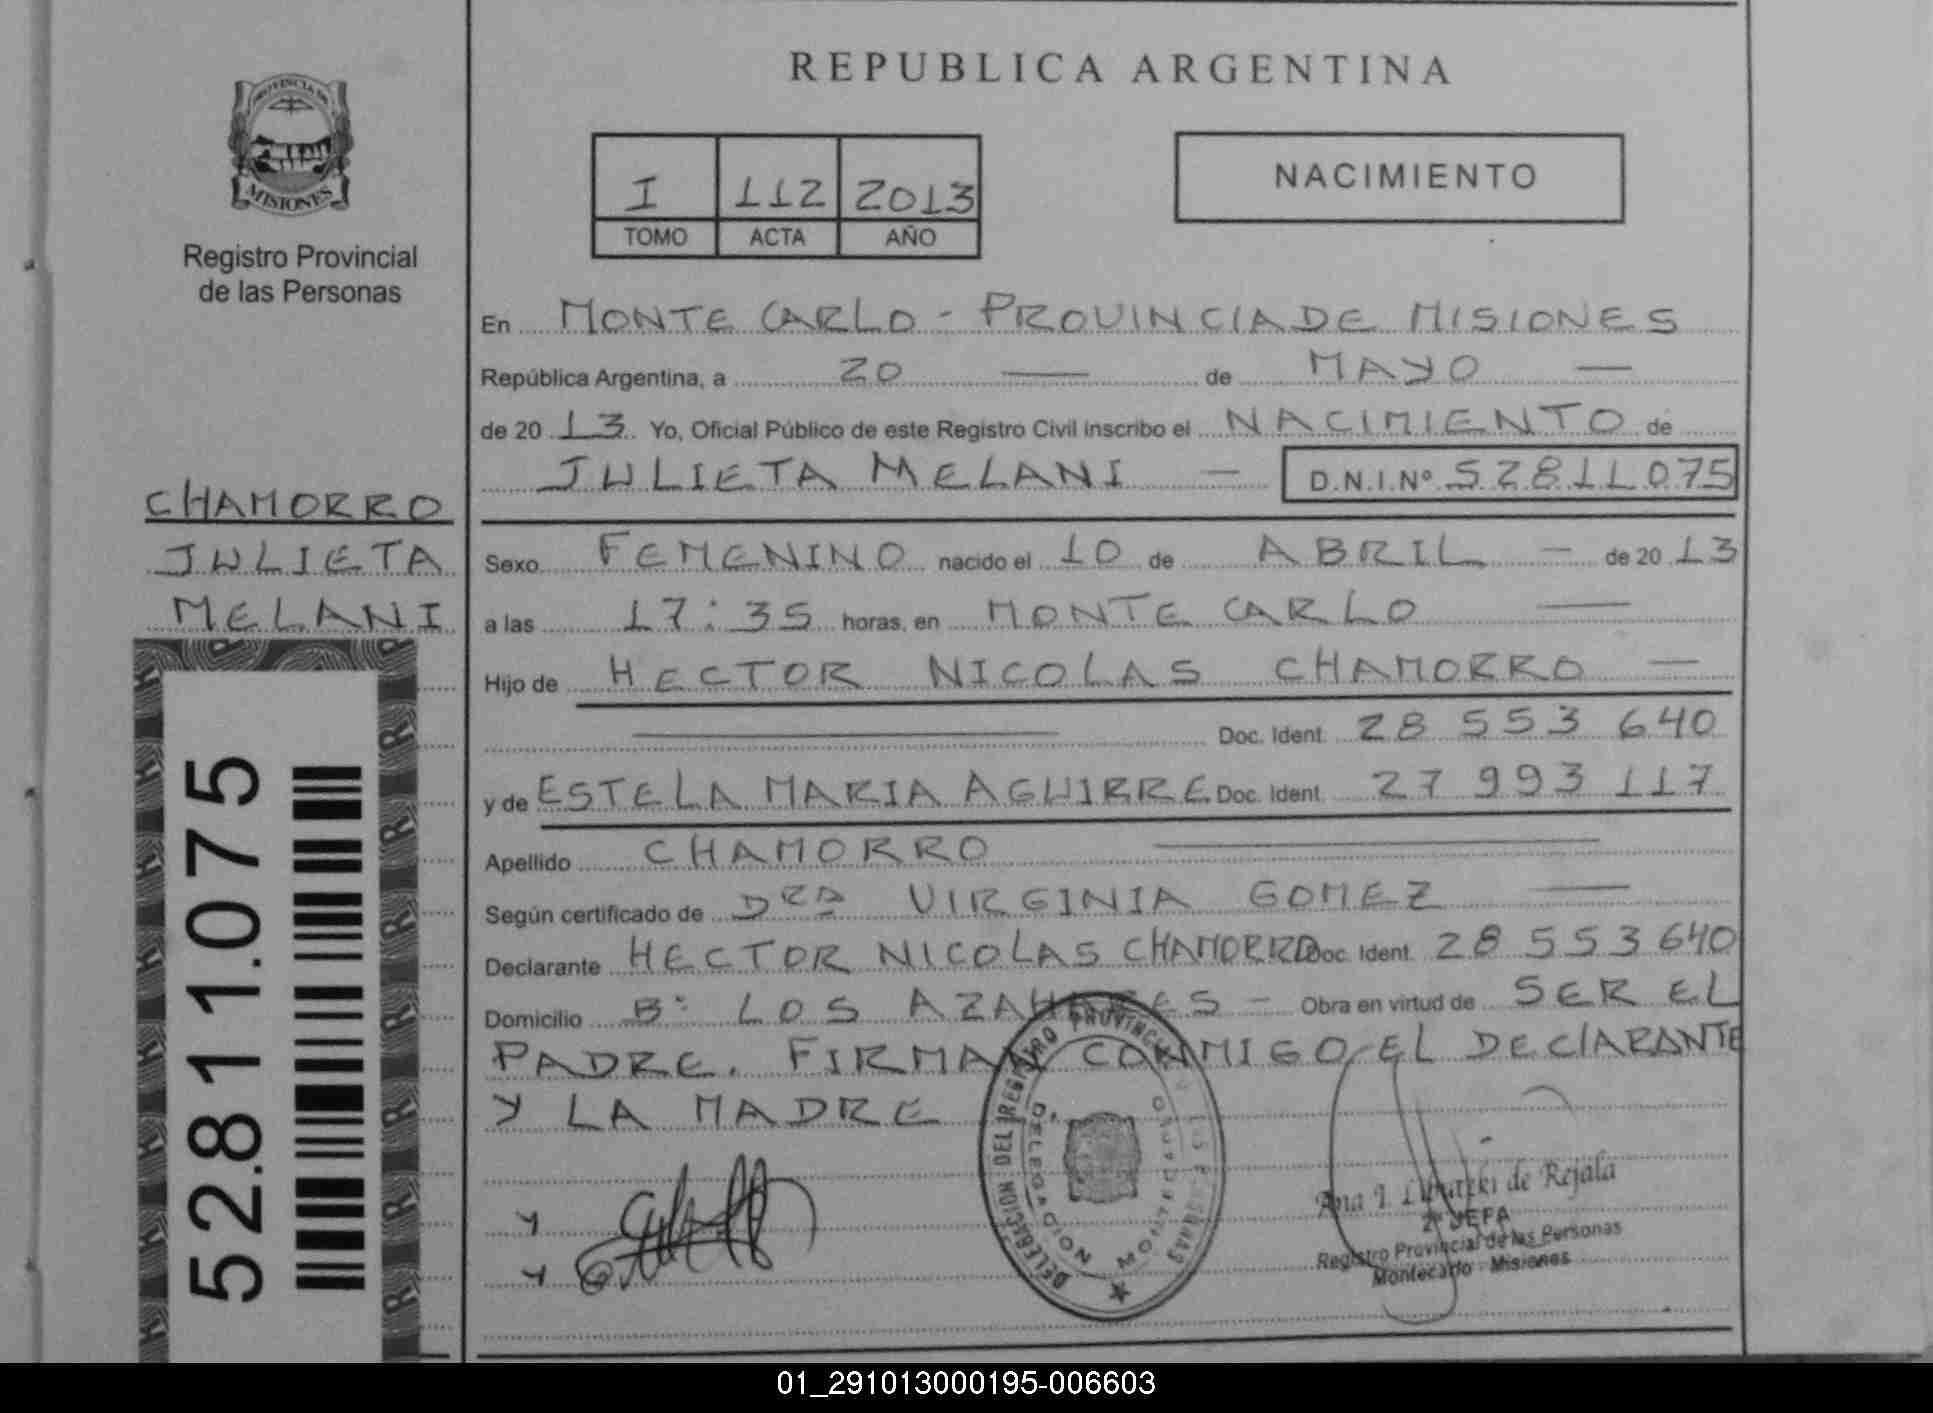 REPUBLICA ARGENTINA
PROVINCIA DE
MISIONES
Registro Provincial
de las Personas
I 112 2013
TOMO ACTA AÑO
NACIMIENTO
En MONTE CARLO - PROVINCIA DE MISIONES
República Argentina, a 20 — de MAYO —
de 20 13 Yo, Oficial Público de este Registro Civil inscribo el NACIMIENTO de
JULIETA MELANI — D.N.I.Nº 52811075
CHAMORRO
JULIETA
MELANI
Sexo FEMENINO nacido el 10 de ABRIL — de 20 13
a las 17:35 horas, en MONTE CARLO —
Hijo de HECTOR NICOLAS CHAMORRO —
— Doc. Ident. 28 553 640
y de ESTELA MARIA AGUIRRE Doc. Ident. 27 993 117
Apellido CHAMORRO —
Según certificado de DRA VIRGINIA GOMEZ —
Declarante HECTOR NICOLAS CHAMORRO Doc. Ident. 28 553 640
Domicilio Bº LOS AZAHARES - Obra en virtud de SER EL
PADRE. FIRMAN CONMIGO EL DECLARANTE
Y LA MADRE
52.811.075
DELEGACION DEL REGISTRO PROVINCIAL DE LAS PERSONAS
Ana de Rejala
2º JEFA
Registro Provincial de las Personas
Montecarlo - Misiones
01_291013000195-006603